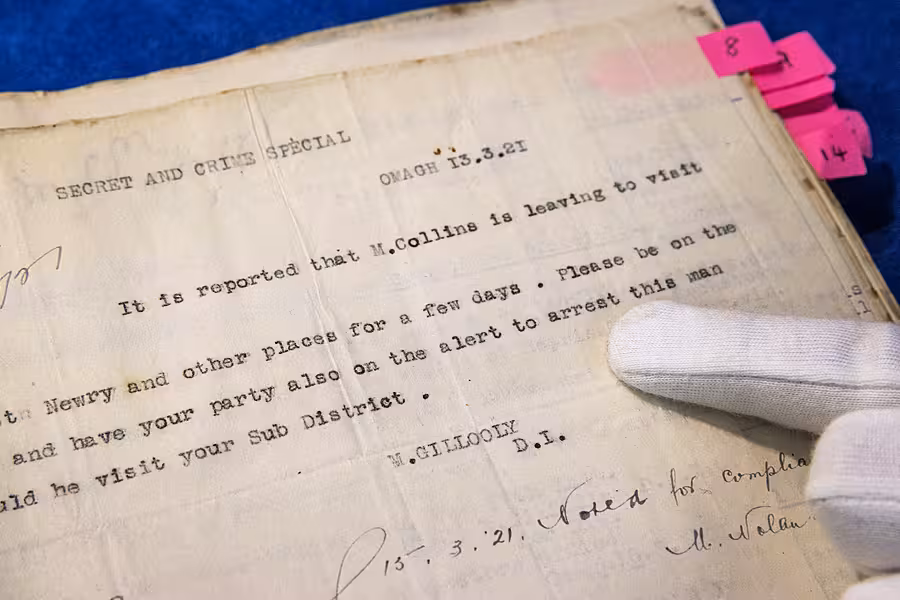 8
2
14
SECRET AND CRIME SPECIAL
OMAGH 13.3.21
It is reported that M.Collins is leaving to visit
Newry and other places for a few days . Please be on the
and have your party also on the alert to arrest this man
uld he visit your Sub District .
M.GILLOOLY
D.I.
15.3.'21. Noted for complia
M. Nolan